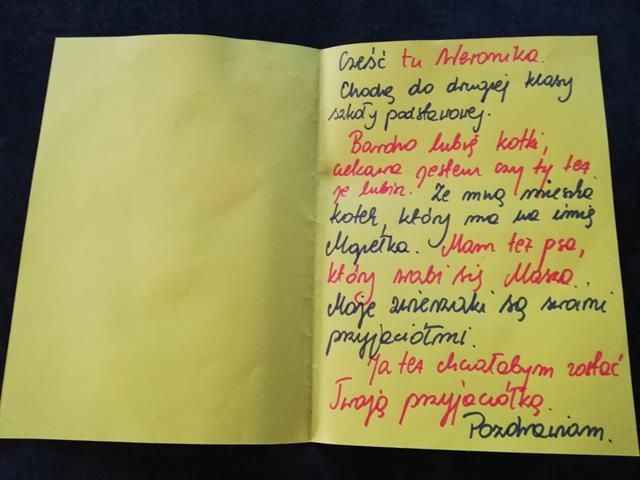 Cześć tu Weronika.
Chodzę do drugiej klasy
szkoły podstawowej.
Bardzo lubię kotki,
ciekawa jestem czy ty też
je lubisz. Ze mną mieszka
kotek, który ma na imię
Mopetka. Mam też psa,
który wabi się Masza.
Moje zwierzaki są swoimi
przyjaciółmi.
Ja też chciałabym zostać
Twoją przyjaciółką.
Pozdrawiam.